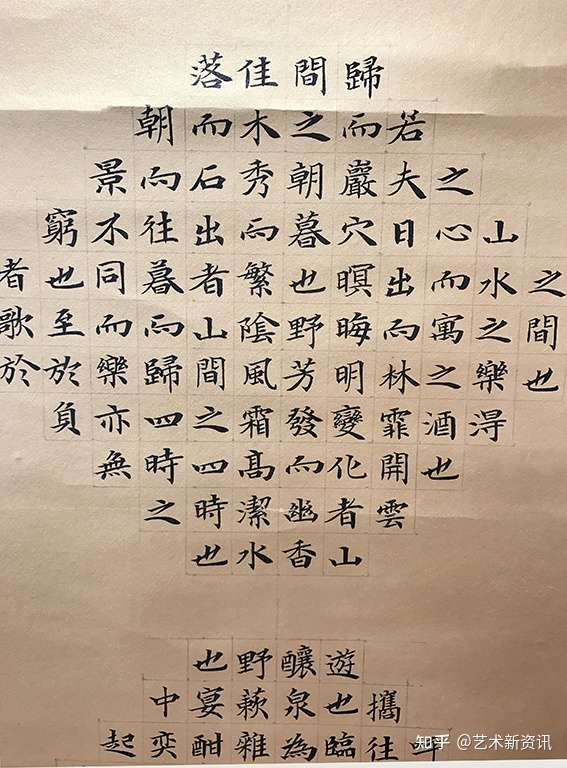 之間也
山水之樂得
之心而寓之酒也
若夫日出而林霏開雲
歸而巖穴暝晦明變化者山
間之朝暮也野芳發而幽香
佳木秀而繁陰風霜高潔水
落而石出者山間之四時也
朝而往暮而歸四時之
景不同而樂亦無
窮也至於負
者歌於
攜往
遊也臨
釀泉為
野蔌雜
也宴酣
中奕
起
知乎 @艺术新资讯